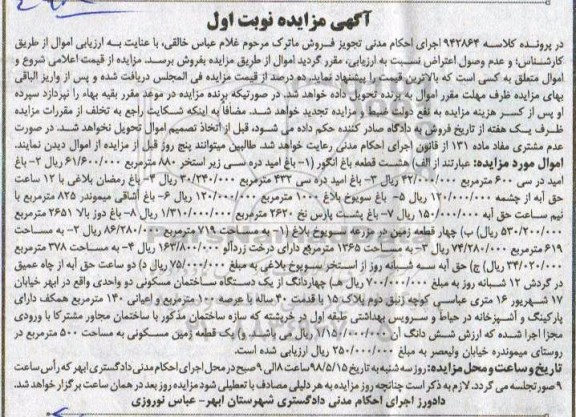 آگهی مزایده نوبت اول
در پرونده کلاسه ۹۴۲۸۶۴ اجرای احکام مدنی تجویز فروش ماترک مرحوم غلام عباس خالقی، با عنایت به ارزیابی اموال از طریق
کارشناس؛ و عدم وصول اعتراض نسبت به ارزیابی، مقرر گردید اموال از طریق مزایده بفروش برسد. مزایده از قیمت اعلامی شروع و
اموال متعلق به کسی است که بالاترین قیمت را پیشنهاد نماید. ده درصد از قیمت مزایده فی المجلس دریافت شده و پس از واریز الباقی
بهای مزایده ظرف مهلت مقرر اموال به برنده تحویل داده خواهد شد. در صورتیکه برنده مزایده در موعد مقرر بقیه بهاء را نپردازد سپرده
او پس از کسر هزینه مزایده به نفع دولت ضبط و مزایده تجدید خواهد شد. مضافاً به اینکه شکایت راجع به تخلف از مقررات مزایده
ظرف یک هفته از تاریخ فروش به دادگاه صادر کننده حکم داده می شود، قبل از اتخاذ تصمیم اموال تحویل نخواهد شد. در صورت
عدم مشتری مفاد ماده ۱۳۱ از قانون اجرای احکام مدنی رعایت خواهد شد. طالبین میتوانند پنج روز قبل از مزایده از اموال دیدن نمایند.
اموال مورد مزایده: عبارتند از الف) هشت قطعه باغ انگور (۱- باغ امید دره سی زیر استخر ۸۸۰ مترمربع ۶۱/۶۰۰/۰۰۰ ریال ۲- باغ
امید در سی ۶۰۰ مترمربع ۴۲/۰۰۰/۰۰۰ ریال ۳- باغ امید دره سی ۴۳۲ مترمربع ۳۰/۲۴۰/۰۰۰ ریال ۴- باغ رمضان بلاغی با ۱۲ ساعت
حق آبه از چشمه ۱۲۰/۰۰۰/۰۰۰ ریال ۵- باغ سویوخ بلاغ ۱۰۰۰ مترمربع ۱۲۰/۰۰۰/۰۰۰ ریال ۶- باغ آشاقی میموندر ۸۲۵ مترمربع با
نیم ساعت حق آبه ۱۵۰/۰۰۰/۰۰۰ ریال ۷- باغ پشت پارس نخ ۲۶۲۰ مترمربع ۱/۳۱۰/۰۰۰/۰۰۰ ریال ۸- باغ دوز بالا ۲۶۵۱ مترمربع
۵۳۰/۲۰۰/۰۰۰ ریال) ب) چهار قطعه زمین در مزرعه سویوخ بلاغ (۱- به مساحت ۷۱۹ مترمربع ۸۶/۲۸۰/۰۰۰ ریال ۲- به مساحت
۶۱۹ مترمربع ۷۴/۲۸۰/۰۰۰ ریال ۳- به مساحت ۱۳۶۵ مترمربع دارای درخت زردآلو ۱۶۳/۸۰۰/۰۰۰ ریال ۴- به مساحت ۳۷۸ مترمربع
۳۴/۰۲۰/۰۰۰ ریال) ج) حق آبه سه شبانه روز از استخر سویوخ بلاغی به مبلغ ۷۵/۰۰۰/۰۰۰ ریال د) دو ساعت حق آبه از چاه عمیق
در گردش ۱۲ شبانه روز به مبلغ ۷۰۰/۰۰۰/۰۰۰ ریال هـ) چهاردانگ از یک دستگاه ساختمان مسکونی دو واحدی واقع در ابهر خیابان
۱۷ شهریور ۱۶ متری عباسی کوچه زنبق دوم پلاک ۱۵ با قدمت ۴۰ ساله با عرصه ۲۰۰ مترمربع و اعیانی ۱۴۰ مترمربع همکف دارای
پارکینگ و آشپزخانه در حیاط و سرویس بهداشتی طبقه اول در خرپشته که سازه ساختمان مذکور با ساختمان مجاور مشترکا با ورودی
مجزا اجرا شده که ارزش شش دانگ آن ۷/۱۵۰/۰۰۰/۰۰۰ ریال می باشد. و) یک قطعه زمین مسکونی به مساحت ۵۰۰ مترمربع در
روستای میموندره خیابان ولیعصر به مبلغ ۲۵۰/۰۰۰/۰۰۰ ریال ارزیابی شده است.
تاریخ و ساعت و محل مزایده: روز سه شنبه به تاریخ ۹۸/۵/۱۵ ساعت ۸ الی ۹ صبح در محل اجرای احکام مدنی دادگستری ابهر که رأس ساعت
۹ صورتجلسه می گردد. لازم به ذکر است چنانچه روز مزایده به هر دلیلی مصادف با تعطیلی شود مزایده روز بعد در همان ساعت برگزار خواهد شد.
دادورز اجرای احکام مدنی دادگستری شهرستان ابهر- عباس نوروزی